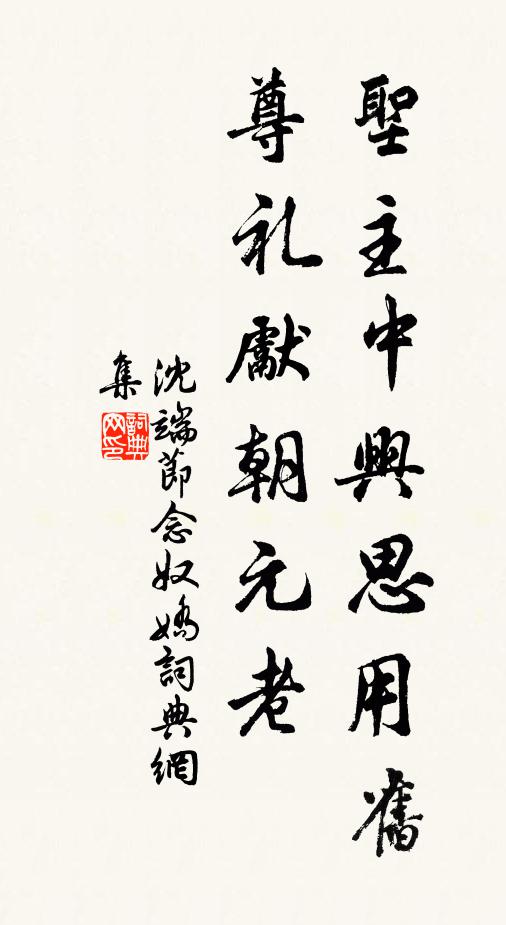 聖主中興思用舊
尊礼獻朝元老
沈端節念奴嬌詞典網
集
詞典
网印